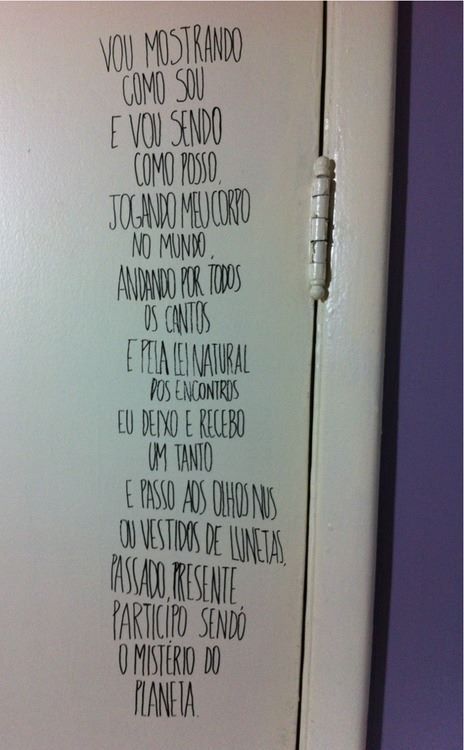 VOU MOSTRANDO
COMO SOU
E VOU SENDO
COMO POSSO,
JOGANDO MEU CORPO
NO MUNDO,
ANDANDO POR TODOS
OS CANTOS
E PELA LEI NATURAL
DOS ENCONTROS
EU DEIXO E RECEBO
UM TANTO
E PASSO AOS OLHOS NUS
OU VESTIDOS DE LUNETAS,
PASSADO, PRESENTE
PARTICIPO SENDO
O MISTÉRIO DO
PLANETA.